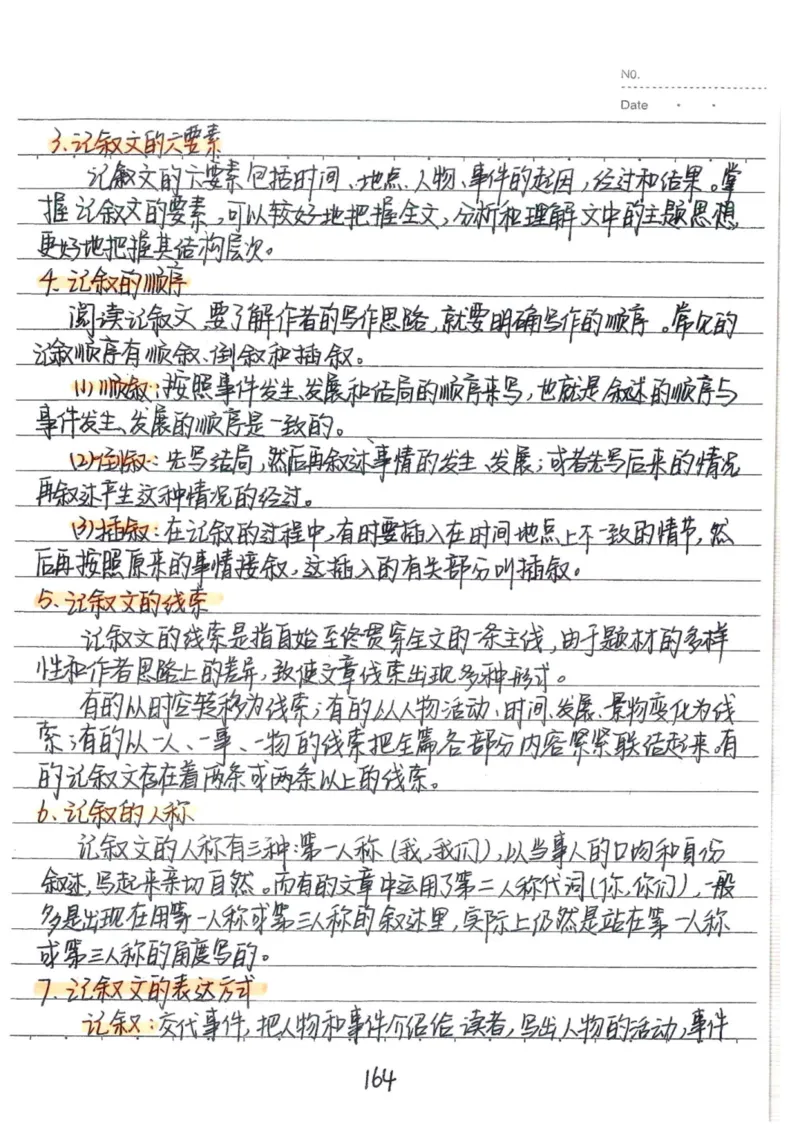 NO.
Date
3.记叙文的六要素
记叙文的六要素包括时间、地点、人物、事件的起因，经过和结果。掌
握记叙文的要素，可以较好地把握全文，分析和理解文中的主题思想
更好地把握其结构层次。
4.记叙的顺序
阅读记叙文 要了解作者的写作思路，就要明确写作的顺序。常见的
记叙顺序有顺叙、倒叙和插叙。
(1)顺叙：按照事件发生、发展和结局的顺序来写，也就是叙述的顺序与
事件发生、发展的顺序是一致的。
(2)倒叙：先写结局，然后再叙述事情的发生、发展；或者先写后来的情况
再叙述产生这种情况的经过。
(3)插叙：在记叙的过程中，有时要插入在时间地点上不一致的情节，然
后再按照原来的事情接叙，这插入的有关部分叫插叙。
5、记叙文的线索
记叙文的线索是指自始至终贯穿全文的一条主线，由于题材的多样
性和作者思路上的差异，致使文章线索出现多种形式。
有的从时空转移为线索；有的从人物活动、时间、发展、景物变化为线
索；有的从一人、一事、一物的线索把全篇各部分内容紧紧联结起来。有
的记叙文存在着两条或两条以上的线索。
6、记叙的人称
记叙文的人称有三种：第一人称（我，我们），以当事人的口吻和身份
叙述，写起来亲切自然。而有的文章中运用了第二人称代词（你，你们），一般
多是出现在用第一人称或第三人称的叙述里，实际上仍然是站在第一人称
或第三人称的角度写的。
7.记叙文的表达方式
记叙：交代事件，把人物和事件介绍给读者，写出人物的活动，事件
164